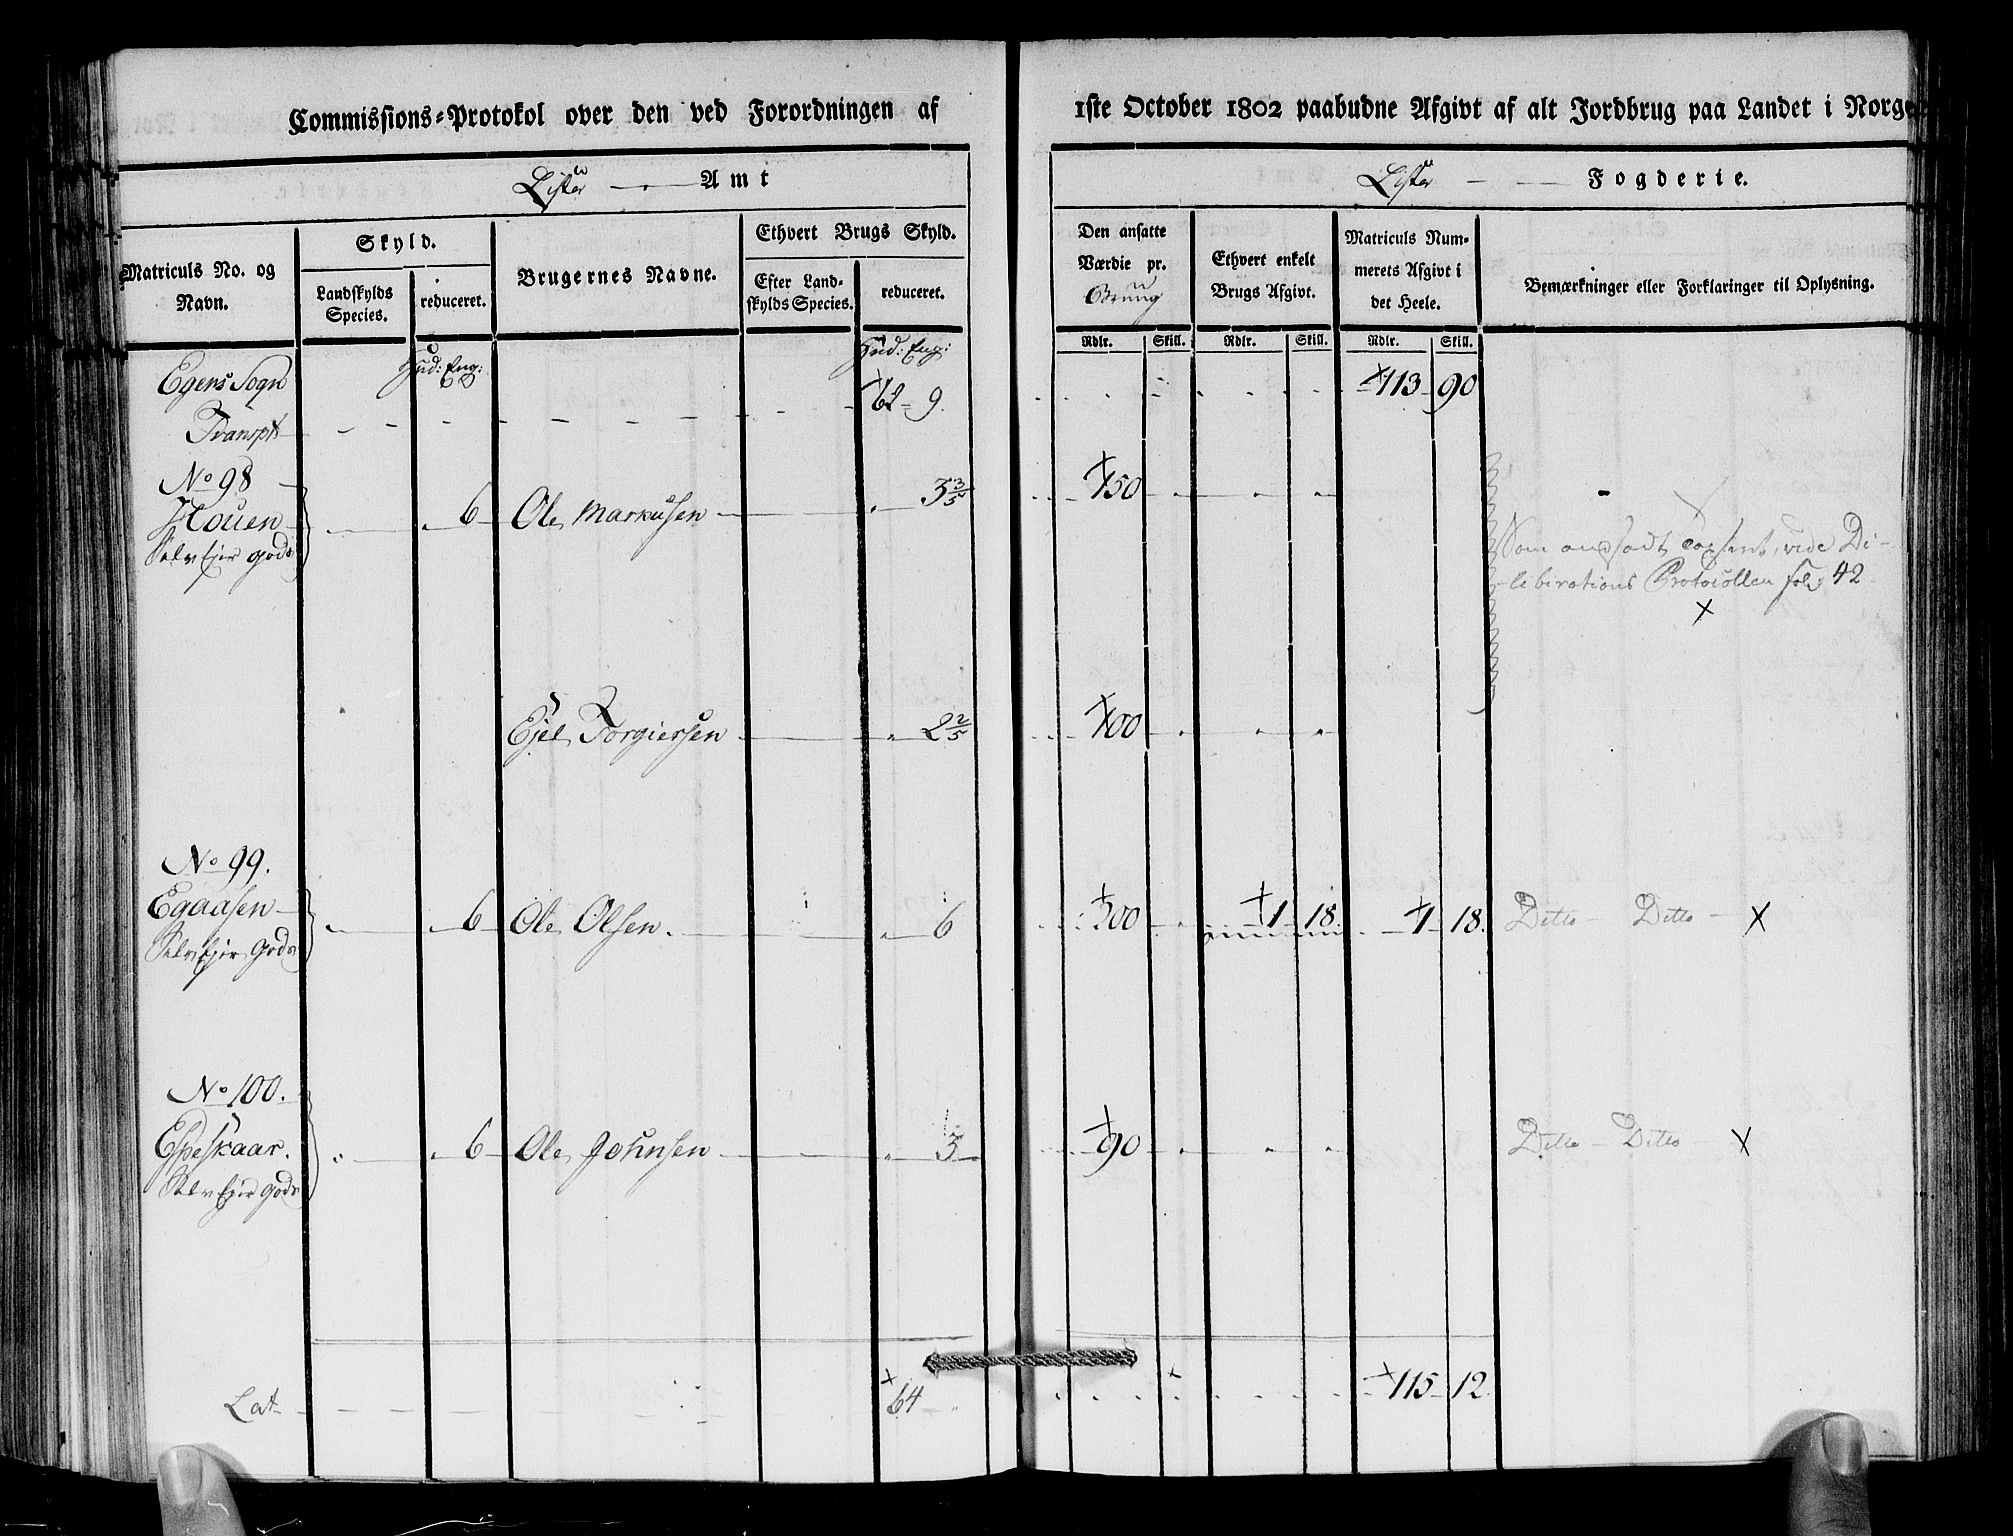 Commissions-Protokol over den ved Forordningen af 1ste October 1802 paabudne Afgivt af alt Jordbrug paa Landet i Norge
Lister Amt
Lister Fogderie.
Matriculs No. og Navn.
Skyld.
Landskylds Species.
reduceret.
Brugernes Navne.
Ethvert Brugs Skyld.
Efter Landskylds Species.
reduceret.
Den ansatte Værdie pr. Brug
Ethvert enkelt Brugs Afgivt.
Matriculs Nummerets Afgivt i det Heele.
Bemærkninger eller Forklaringer til Oplysning.
Rdlr. Skill. Rdlr. Skill. Rdlr. Skill.
Hud: Eng: Hud: Eng:
Egens Sogn
Transpt 62 9. 113 90
No 98
Houen 6 Ole Markusen 3 3/5 150
Selv Ejer gods
Som ansadt taxeret, vide De-
liberations Protocollen fol 42
Ejel Torgiersen 2 2/5 100
No 99.
Egaasen 6 Ole Olsen. 6 300 1 18 1 18.
Selv Ejer Gods
Ditto Ditto X
No 100.
Espeskaar. 6 Ole Johnsen 3 90
Selv Ejer gods
Ditto Ditto X
Lat 64 115 12